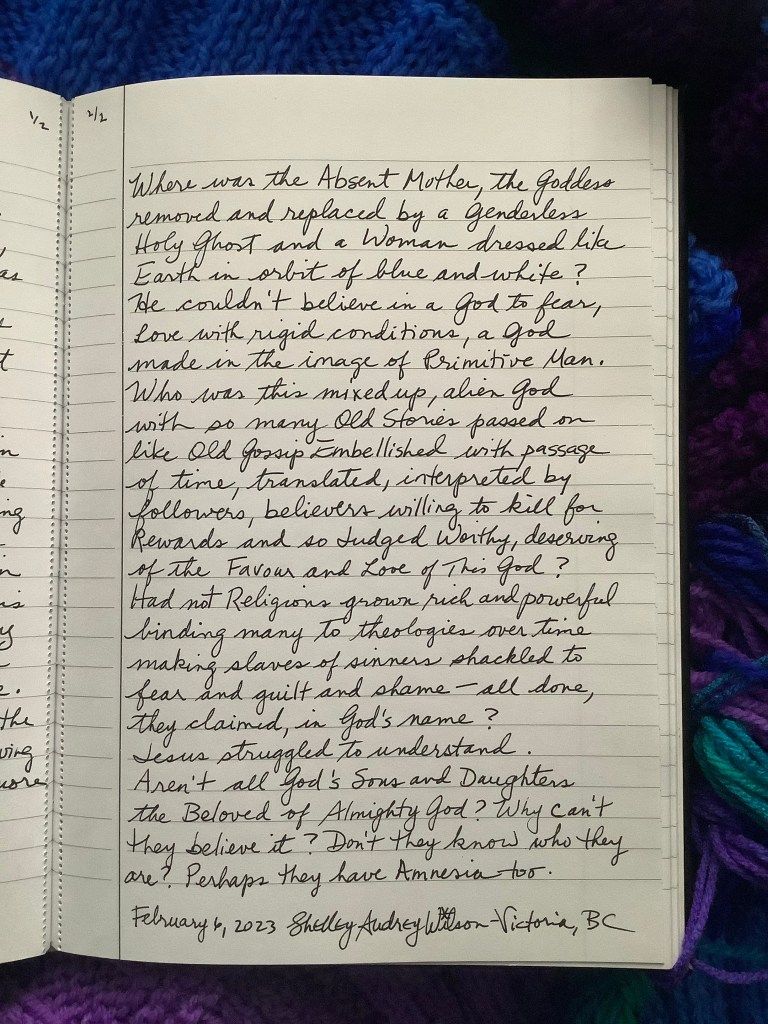 1/2
2/2
as
t
in
ng
n
is
y
e.
the
ving
more
Where was the Absent Mother, the Goddess
removed and replaced by a Genderless
Holy Ghost and a Woman dressed like
Earth in orbit of blue and white?
He couldn't believe in a God to fear,
Love with rigid conditions, a God
made in the image of Primitive Man.
Who was this mixed up, alien God
with so many Old Stories passed on
like Old Gossip Embellished with passage
of time, translated, interpreted by
followers, believers willing to kill for
Rewards and so Judged Worthy, deserving
of the Favour and Love of This God?
Had not Religions grown rich and powerful
binding many to theologies over time
making slaves of sinners shackled to
fear and guilt and shame – all done,
they claimed, in God's name?
Jesus struggled to understand.
Aren't all God's Sons and Daughters
the Beloved of Almighty God? Why can't
they believe it? Don't they know who they
are? Perhaps they have Amnesia too.
February 6, 2023 Shelley Audrey Wilson – Victoria, BC